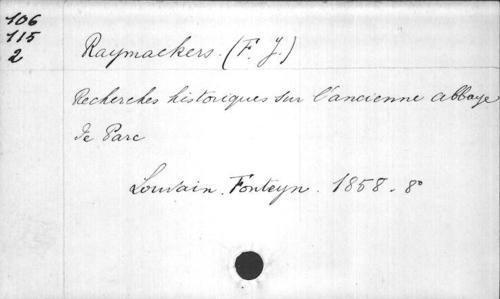 106
115
2
Raymaekers. (F. J.)
Recherches historiques sur l'ancienne abbaye
de Parc
Louvain. Fonteyn. 1858. 8°